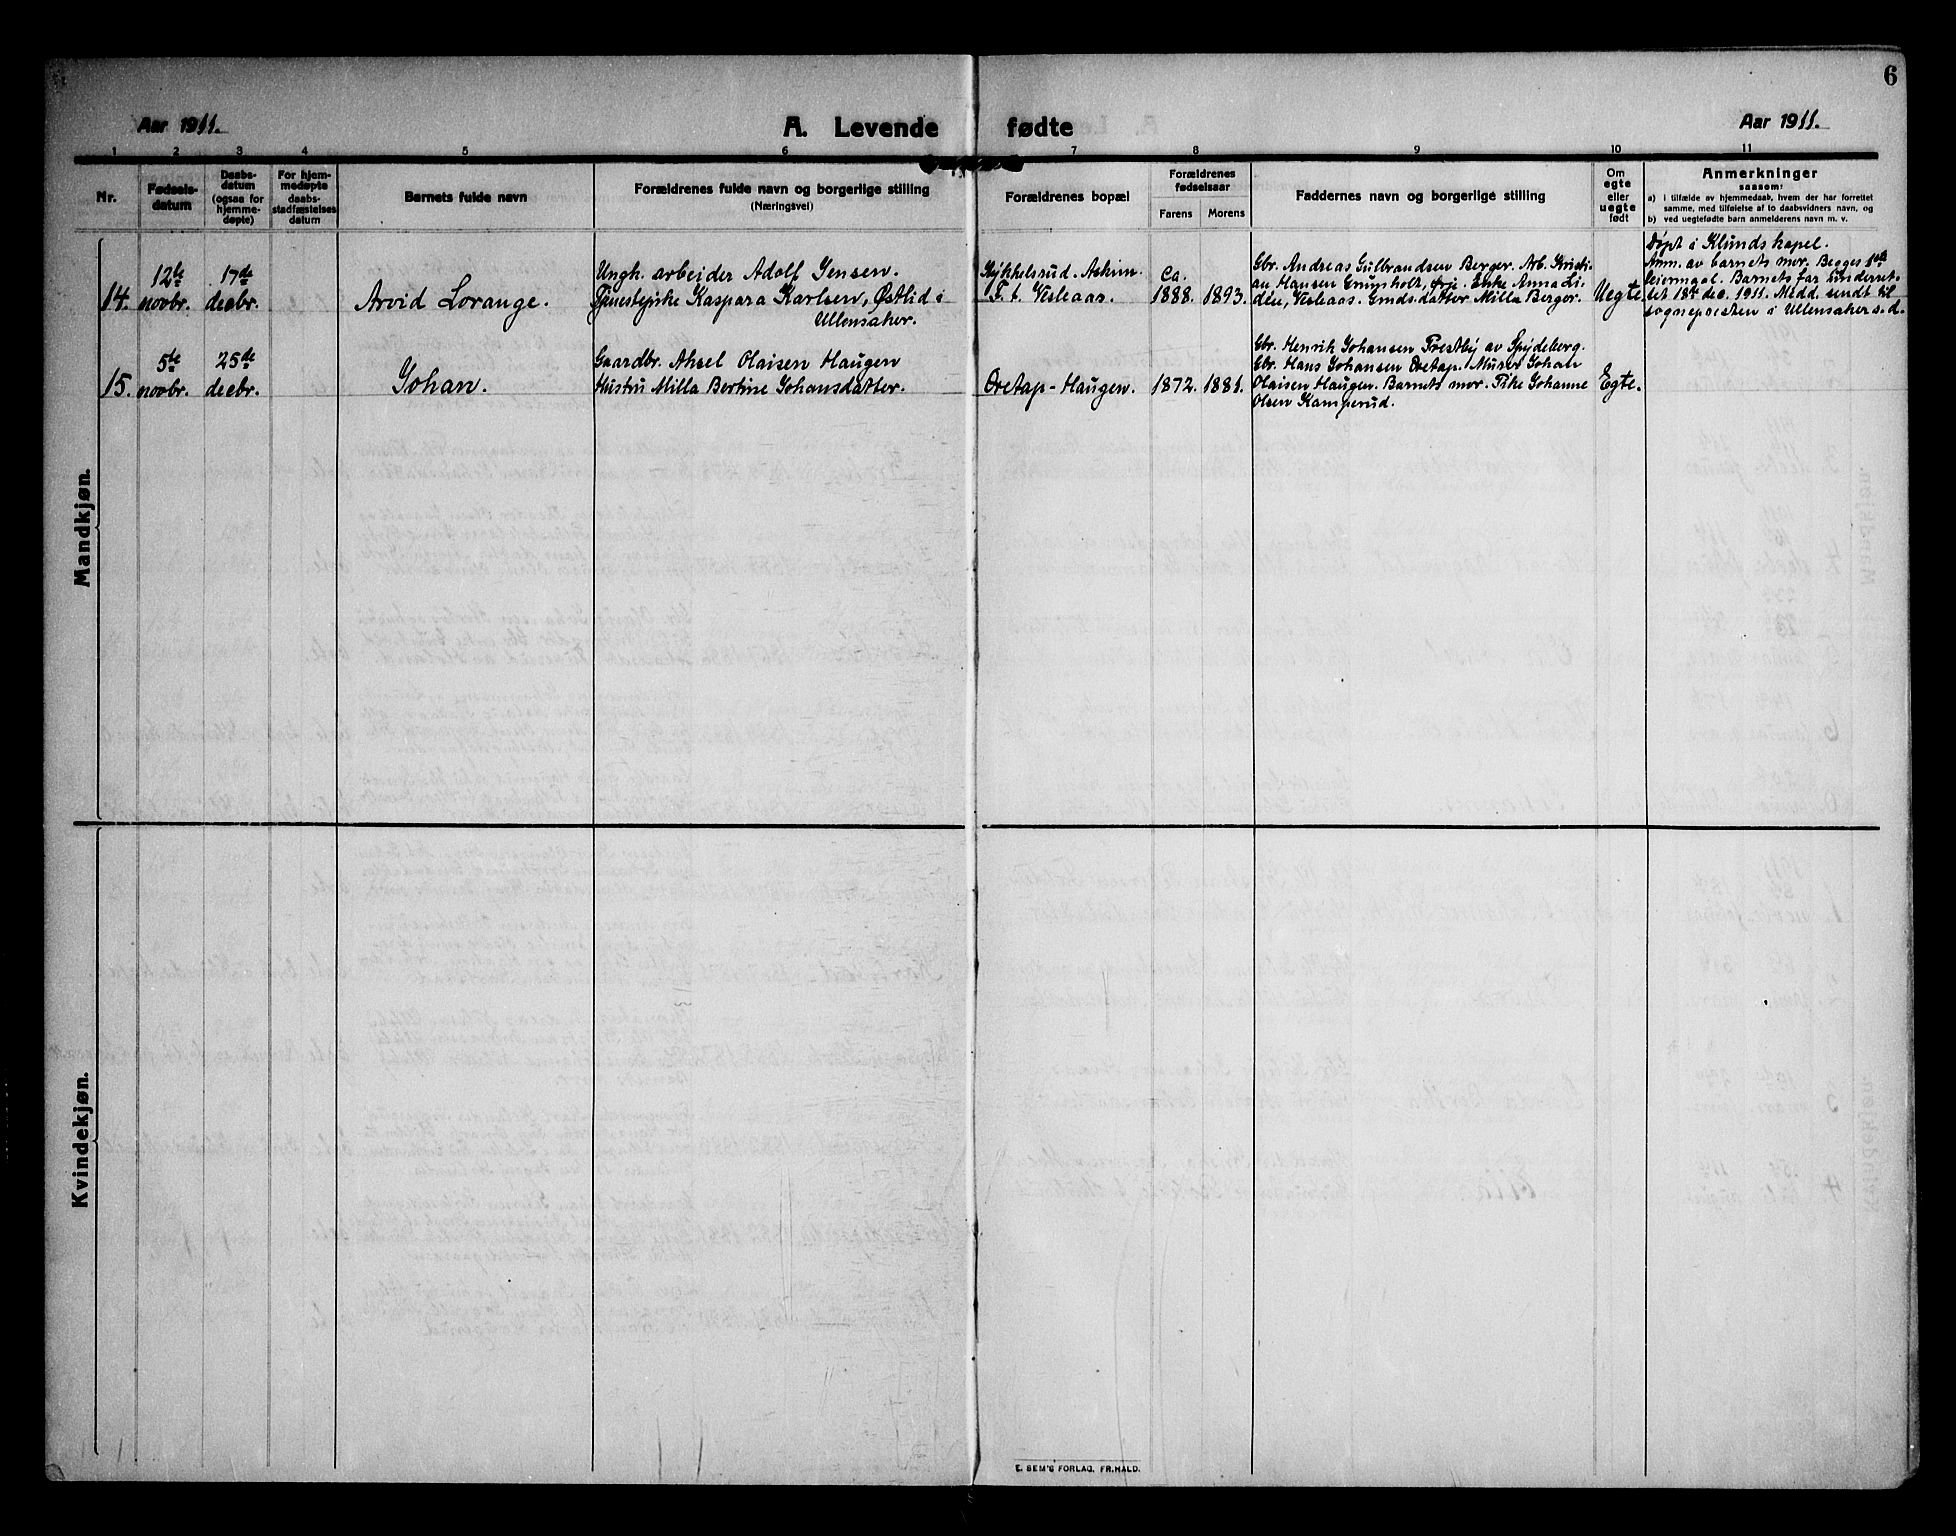 6
Aar 1911.
A. Levende fødte
Aar 1911.
1 2 3 4 5 6 7 8 9 10 11
Nr.
Fødsels-
datum
Daabs-
datum
(ogsaa for
hjemme-
døpte)
For hjem-
medøpte
daabs-
stadfæstelses
datum
Barnets fulde navn
Forældrenes fulde navn og borgerlige stilling
(Næringsvei)
Forældrenes bopæl
Forældrenes
fødselsaar
Farens
Morens
Faddernes navn og borgerlige stilling
Om
egte
eller
uegte
født
Anmerkninger
saasom:
a) i tilfælde av hjemmedaab, hvem der har forrettet
samme, med tilføielse af to daabsvidners navn, og
b) ved uegtefødte børn anmelderens navn m. v.
Mandkjøn.
14.
12te
novbr.
17de
decbr.
Arvid Lorange.
Ungk. arbeider Adolf Jensen.
Tjenestepike Kaspara Karlsen, Østlid i
Ullensaker.
Kykkelsrud. Askim.
F. t. Vesleaas.
Ca.
1888. 1893.
Gbr. Andreas Gulbrandsen Berger. Arb. Kristi-
an Hansen Grimholt, Enke Anna Li-
die, Vesleaas. Gmds.datter Milla Berger.
Uegte
Døpt i Klunds kapel.
Anm. av barnets mor. Begges 1ste
leiermaal. Barnets far underret-
tet 18de dec. 1911. Medd. sendt til
sognepresten i Ullensaker s.d.
15.
5te
novbr.
25de
decbr.
Johan.
Gaardbr. Aksel Olaisen Haugen
Hustru Milla Bertine Johansdatter.
Oretap-Haugen.
1872. 1881.
Gbr. Henrik Johansen Prestby av Spydeberg.
Gbr. Hans Johansen Oretap. Murer Johan
Olaisen Haugen. Barnets mor. Pike Johanne
Olsen Kamperud.
Egte.
Kvindekjøn.
E. SEM'S FORLAG, FR.HALD.